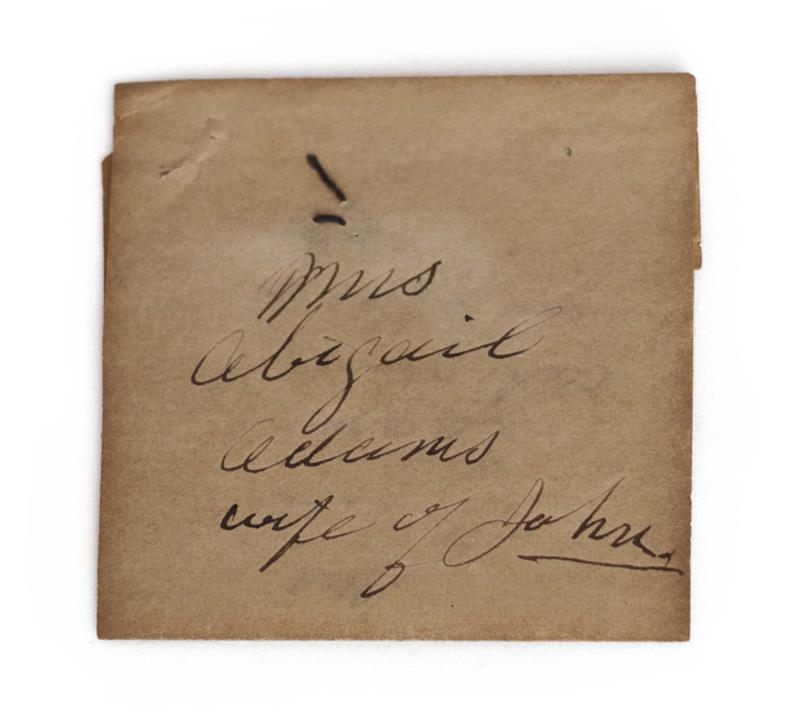 Mrs
Abigail
Adams
wife of John.